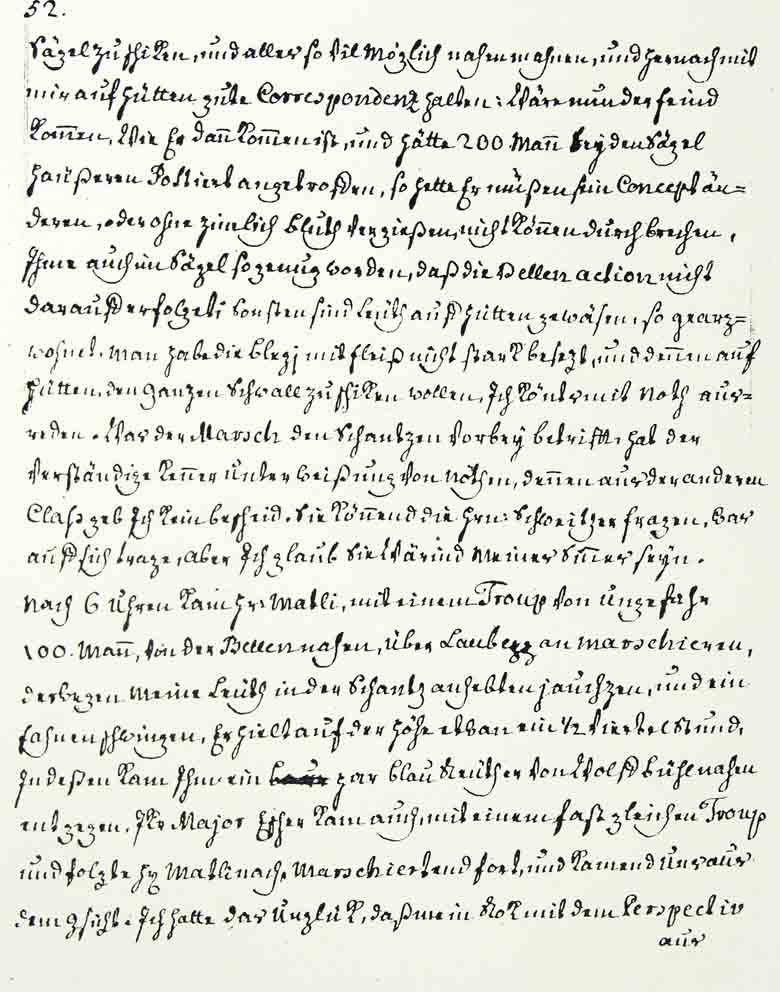 52.
Sägel zu schiken, und alles so vil Möglich nahen mahnen, und hernach mit
mir auf Hütten gute Correspondenz halten: Wäre nun der feind
Kom̄en, Wie Er dan̄ Kom̄en ist, und hätte 200 Man̄ bey den Sägel
Haüßeren Postiert angetroffen, so hette Er müßen sein Concept än=
deren, oder ohne zimlich bluth Vergießen, nicht Kön̄en durchbrechen,
Ihme auch im Sägel so genug worden, daß die Bellen action nicht
darauf erfolget; Sonsten sind Leüth auf Hütten gewäsen, so gearg=
wohnet, Man habe die blegj mit fleiß nicht stark besezt, und den̄en auf
Hütten, den ganzen Schwall zuschiken wollen, Ich Könts mit Noth aus=
reden. Was der Marsch den Schantzen Vorbey betrifft, hat der
Verständige Ken̄er Unterweißung Von nöthen, den̄en aus der anderen
Claß geb Ich Kein bescheid. Sie Kön̄end die Hrn: Schweitzer fragen, Was
auf sich trage, aber Ich glaub Sie Wärind Meiner Stim̄ seyn.
Nach 6 Uhren Kam Hr. Matli, mit einem Troup Von Ungefahr
100. Man̄, Von der Bellen nahen, über Laubegg an marschieren,
deswegen Meine Leüth in der Schantz anhebten jauchzen, und ein
fahnen schwingen, Er hielt auf der Höhe etwan ein 1/2 Viertel Stund,
In deßen Kam Ihm ein gar blau Reüther Von Wolfbühl nahen
entgegen, Jkr Major Escher Kam auch, mit einem fast gleichen Troup
und folgte Hr Matli nach, Marschiertend fort, und Kamend Uns aus
dem Gsicht. Ich hatte das Unglük, daß mein Stok mit dem Perspectiv
aus